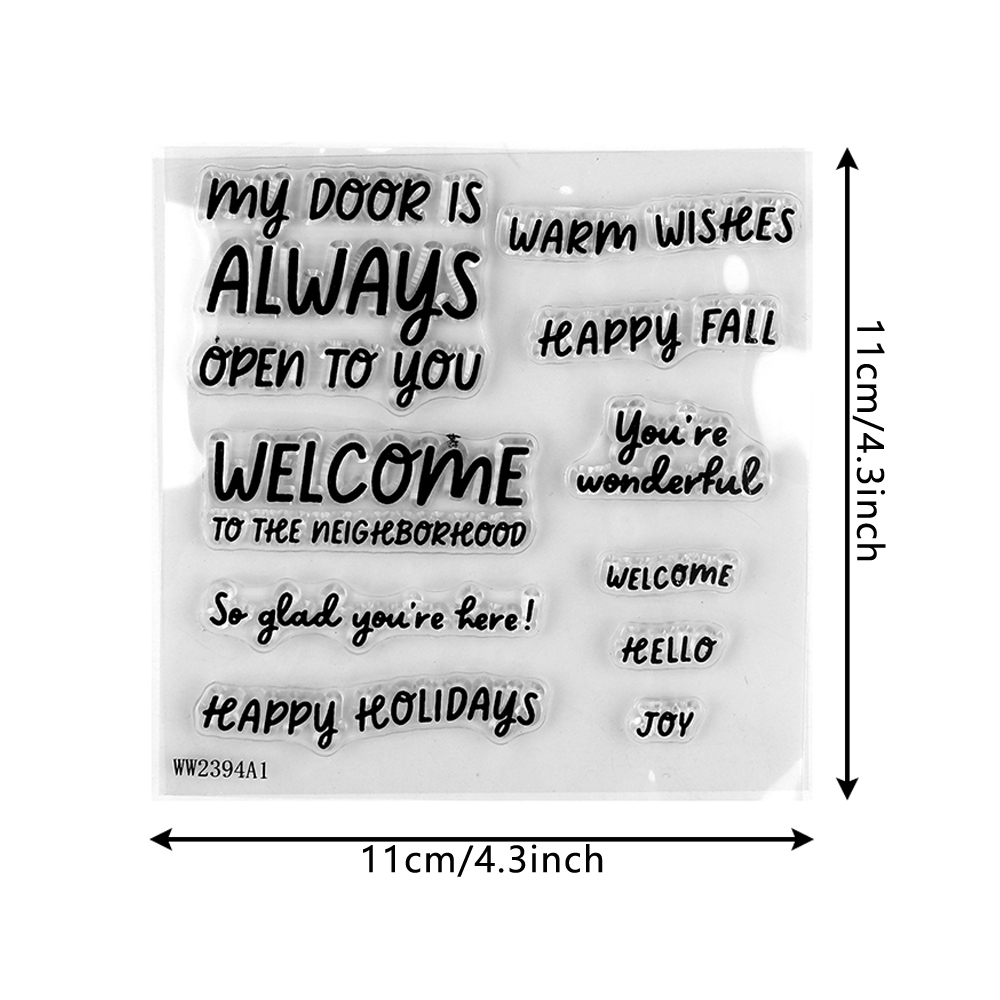 my DOOR IS
ALWAYS
OPEN TO YOU
WELCOME
TO THE NEIGHBORHOOD
So glad you're here!
HAPPY HOLIDAYS
WW2394A1
WARM WISHES
HAPPY FALL
You're
wonderful
WELCOME
HELLO
JOY
11cm/4.3inch
11cm/4.3inch